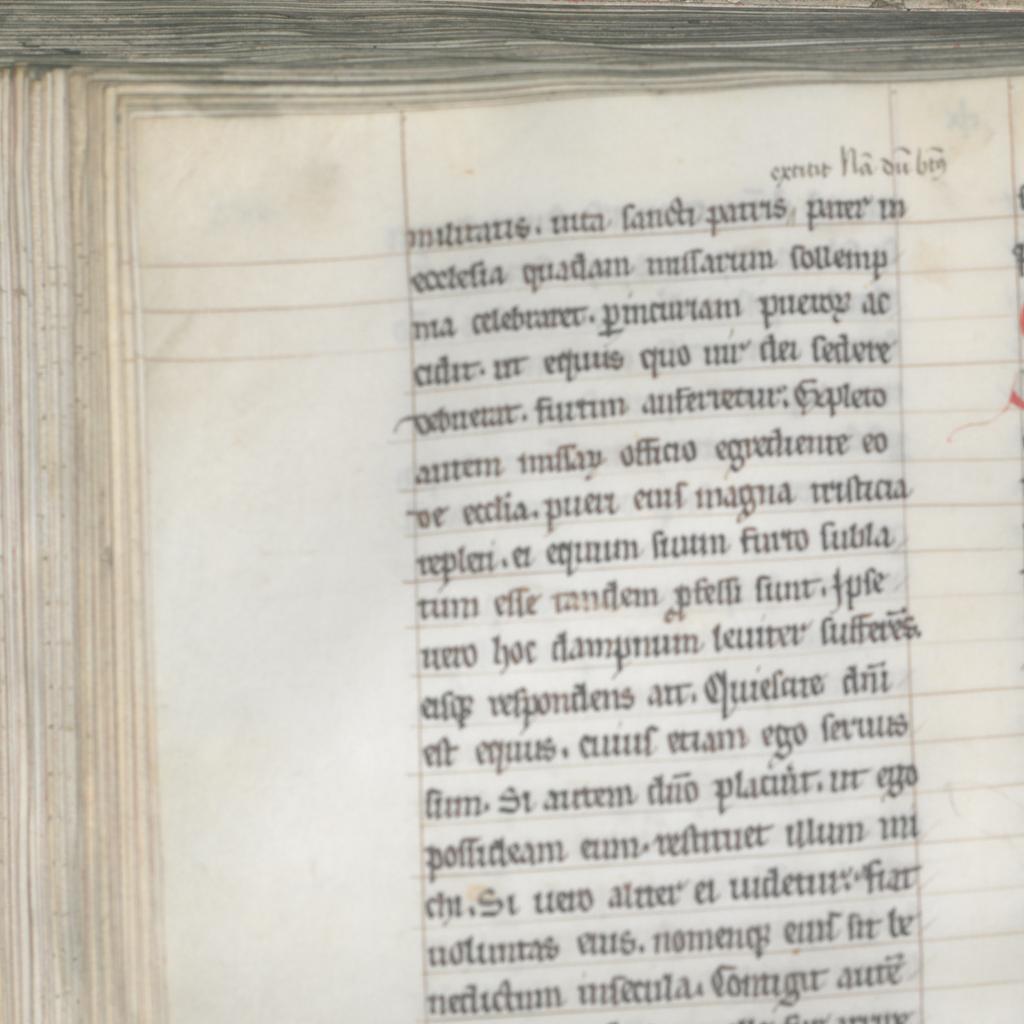 extitit Nā dū btꝰ
militatis. uita sancti patris, pater in
ecclesia quadam missarum sollemp
nia celebraret. ꝑincuriam pueroꝝ ac
cidit. ut equus quo uir dei sedere
debuerat. furtim auferretur. Expleto
autem missaꝝ officio egrediente eo
de ecclia. pueri eius magna tristicia
repleti. et equum suum furto subla
tum esse tandem ꝓfessi sunt. Ipse
uero hoc dampnum leuiter sufferēs.
eisqꝫ respondens ait. Quiescite dn̄i
est equus. cuius etiam ego seruus
sum. Si autem dn̄o placuit. ut ego
possideam eum. restituet illum mi
chi. Si uero aliter ei uidetur. fiat
uoluntas eius. nomenqꝫ eius sit be
nedictum insecula. Contigit autē